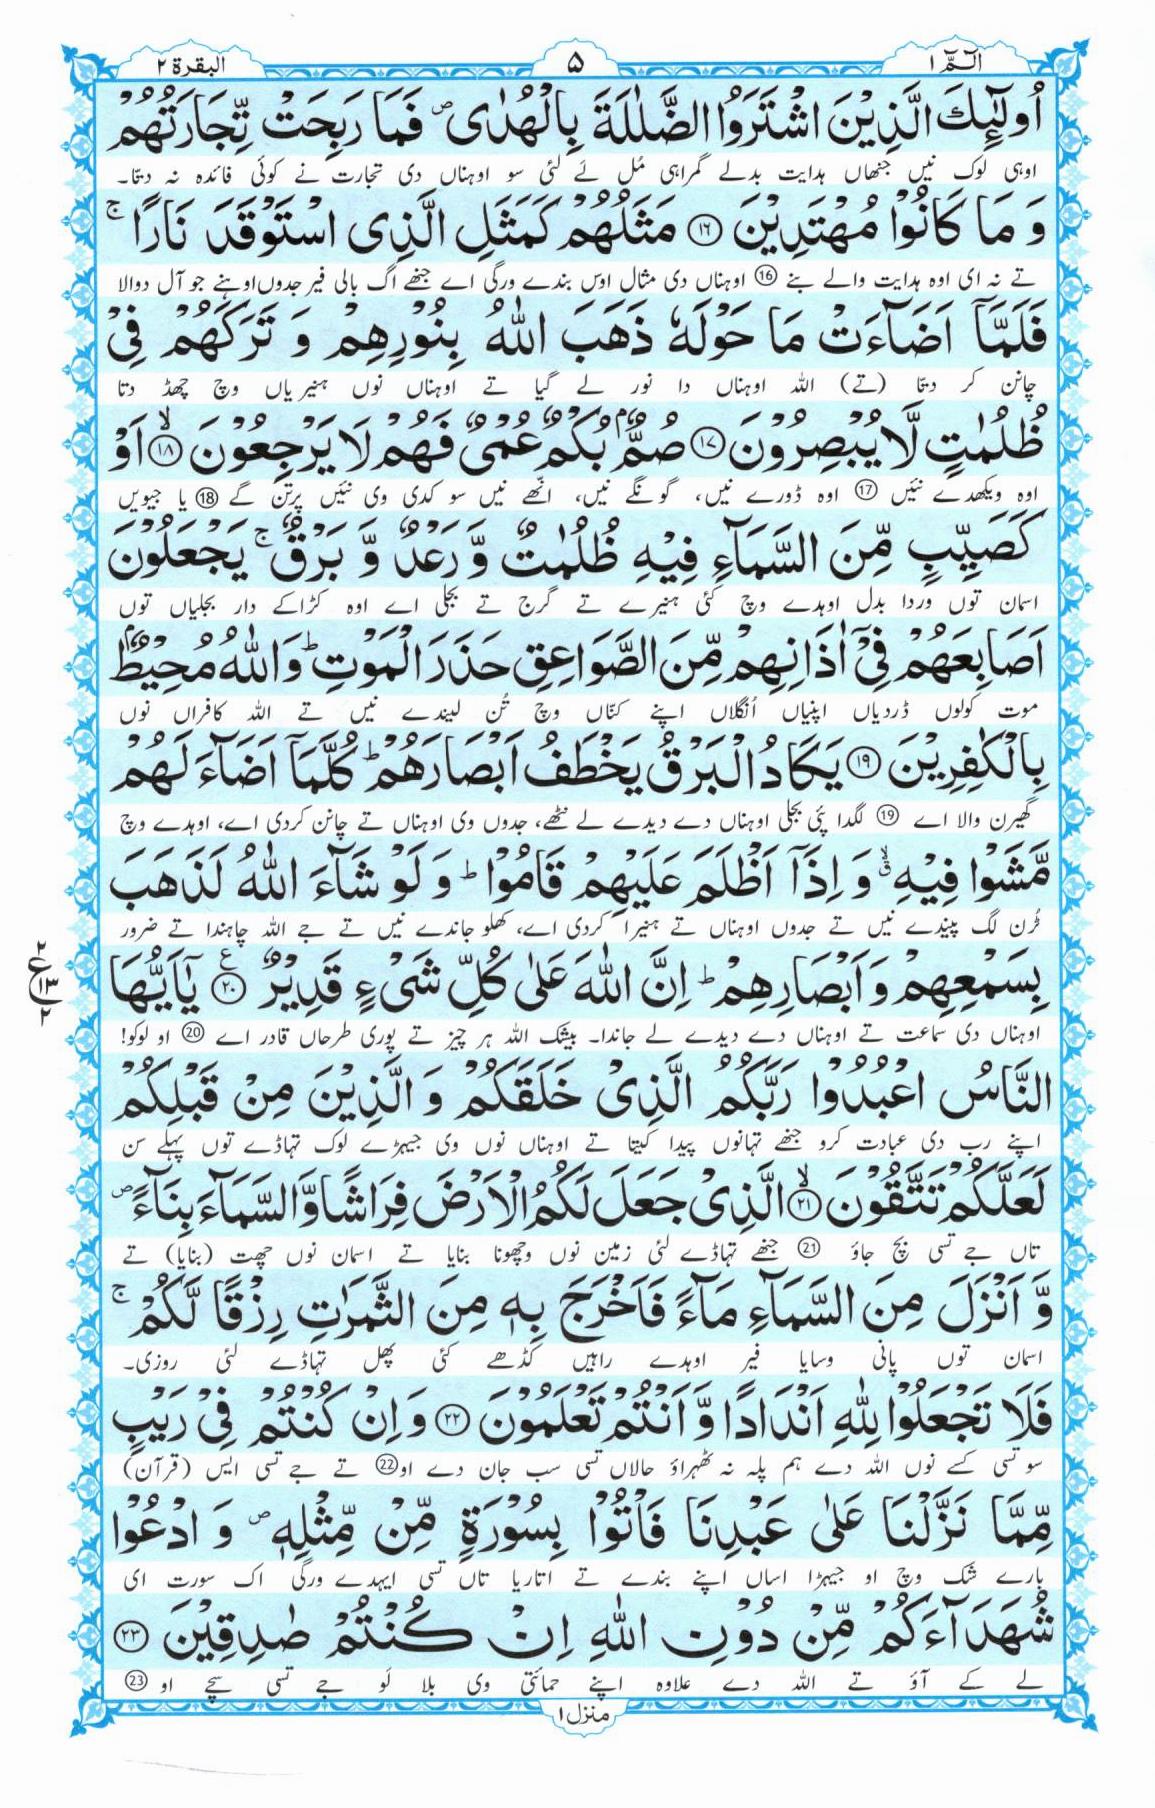 الٓـمّٓ ۱
۵
البقرة ۲
اُولٰٓئِكَ الَّذِيْنَ اشْتَرَوُا الضَّلٰلَةَ بِالْهُدٰى ۪ فَمَا رَبِحَتْ تِّجَارَتُهُمْ
اوہی لوک نیں جنھاں ہدایت بدلے گمراہی مُل لَے لئی سو اوہناں دی تجارت نے کوئی فائدہ نہ دتا۔
وَ مَا كَانُوْا مُهْتَدِيْنَ ﴿۱۶﴾ مَثَلُهُمْ كَمَثَلِ الَّذِى اسْتَوْقَدَ نَارًا ۚ
تے نہ ای اوہ ہدایت والے بنے ⑯ اوہناں دی مثال اوس بندے ورگی اے جنھے اگ بالی فیر جدوں اوہنے جو آل دوالا
فَلَمَّاۤ اَضَآءَتْ مَا حَوْلَهٗ ذَهَبَ اللّٰهُ بِنُوْرِهِمْ وَ تَرَكَهُمْ فِىْ
چانن کر دتا (تے) اللہ اوہناں دا نور لے گیا تے اوہناں نوں ہنیریاں وچ چھڈ دتا
ظُلُمٰتٍ لَّا يُبْصِرُوْنَ ﴿۱۷﴾ صُمٌّۢ بُكْمٌ عُمْىٌ فَهُمْ لَا يَرْجِعُوْنَ ۙ﴿۱۸﴾ اَوْ
اوہ ویکھدے نئیں ⑰ اوہ ڈورے نیں، گونگے نیں، انھے نیں سو کدی وی نئیں پرتن گے ⑱ یا جیویں
كَصَيِّبٍ مِّنَ السَّمَآءِ فِيْهِ ظُلُمٰتٌ وَّ رَعْدٌ وَّ بَرْقٌ ۚ يَجْعَلُوْنَ
اسمان توں وردا بدل اوہدے وچ کئی ہنیرے تے گرج تے بجلی اے اوہ کڑاکے دار بجلیاں توں
اَصَابِعَهُمْ فِىْۤ اٰذَانِهِمْ مِّنَ الصَّوَاعِقِ حَذَرَ الْمَوْتِ ؕ وَاللّٰهُ مُحِيْطٌۢ
موت کولوں ڈردیاں اپنیاں اُنگلاں اپنے کنّاں وچ تُن لیندے نیں تے اللہ کافراں نوں
بِالْكٰفِرِيْنَ ﴿۱۹﴾ يَكَادُ الْبَرْقُ يَخْطَفُ اَبْصَارَهُمْ ؕ كُلَّمَاۤ اَضَآءَ لَهُمْ
گھیرن والا اے ⑲ لگدا پئی بجلی اوہناں دے دیدے لے نٹھے، جدوں وی اوہناں تے چانن کردی اے، اوہدے وچ
مَّشَوْا فِيْهِ ۙۗ وَ اِذَاۤ اَظْلَمَ عَلَيْهِمْ قَامُوْا ؕ وَ لَوْ شَآءَ اللّٰهُ لَذَهَبَ
ٹُرن لگ پیندے نیں تے جدوں اوہناں تے ہنیرا کردی اے، کھلو جاندے نیں تے جے اللہ چاہندا تے ضرور
بِسَمْعِهِمْ وَ اَبْصَارِهِمْ ؕ اِنَّ اللّٰهَ عَلٰى كُلِّ شَىْءٍ قَدِيْرٌ ﴿۲۰﴾ ع يٰۤاَيُّهَا
۲ ع ۱۳ ۲
اوہناں دی سماعت تے اوہناں دے دیدے لے جاندا۔ بیشک اللہ ہر چیز تے پوری طرحاں قادر اے ⑳ او لوکو!
النَّاسُ اعْبُدُوْا رَبَّكُمُ الَّذِىْ خَلَقَكُمْ وَ الَّذِيْنَ مِنْ قَبْلِكُمْ
اپنے رب دی عبادت کرو جنھے تہانوں پیدا کیتا تے اوہناں نوں وی جیہڑے لوک تہاڈے توں پہلے سن
لَعَلَّكُمْ تَتَّقُوْنَ ۙ﴿۲۱﴾ الَّذِىْ جَعَلَ لَكُمُ الْاَرْضَ فِرَاشًا وَّ السَّمَآءَ بِنَآءً ۪
تاں جے تسی بچ جاؤ ㉑ جنھے تہاڈے لئی زمین نوں وچھونا بنایا تے اسمان نوں چھت (بنایا) تے
وَّ اَنْزَلَ مِنَ السَّمَآءِ مَآءً فَاَخْرَجَ بِهٖ مِنَ الثَّمَرٰتِ رِزْقًا لَّكُمْ ۚ
اسمان توں پانی وسایا فیر اوہدے راہیں کڈھے کئی پھل تہاڈے لئی روزی۔
فَلَا تَجْعَلُوْا لِلّٰهِ اَنْدَادًا وَّ اَنْتُمْ تَعْلَمُوْنَ ﴿۲۲﴾ وَ اِنْ كُنْتُمْ فِىْ رَيْبٍ
سو تسی کسے نوں اللہ دے ہم پلہ نہ ٹھہراؤ حالاں تسی سب جان دے او ㉒ تے جے تسی ایس (قرآن)
مِّمَّا نَزَّلْنَا عَلٰى عَبْدِنَا فَاْتُوْا بِسُوْرَةٍ مِّنْ مِّثْلِهٖ ۪ وَ ادْعُوْا
بارے شک وچ او جیہڑا اساں اپنے بندے تے اتاریا تاں تسی ایہدے ورگی اک سورت ای
شُهَدَآءَكُمْ مِّنْ دُوْنِ اللّٰهِ اِنْ كُنْتُمْ صٰدِقِيْنَ ﴿۲۳﴾
لے کے آؤ تے اللہ دے علاوہ اپنے حمائتی وی بلا لَو جے تسی سچے او ㉓
منزل ۱